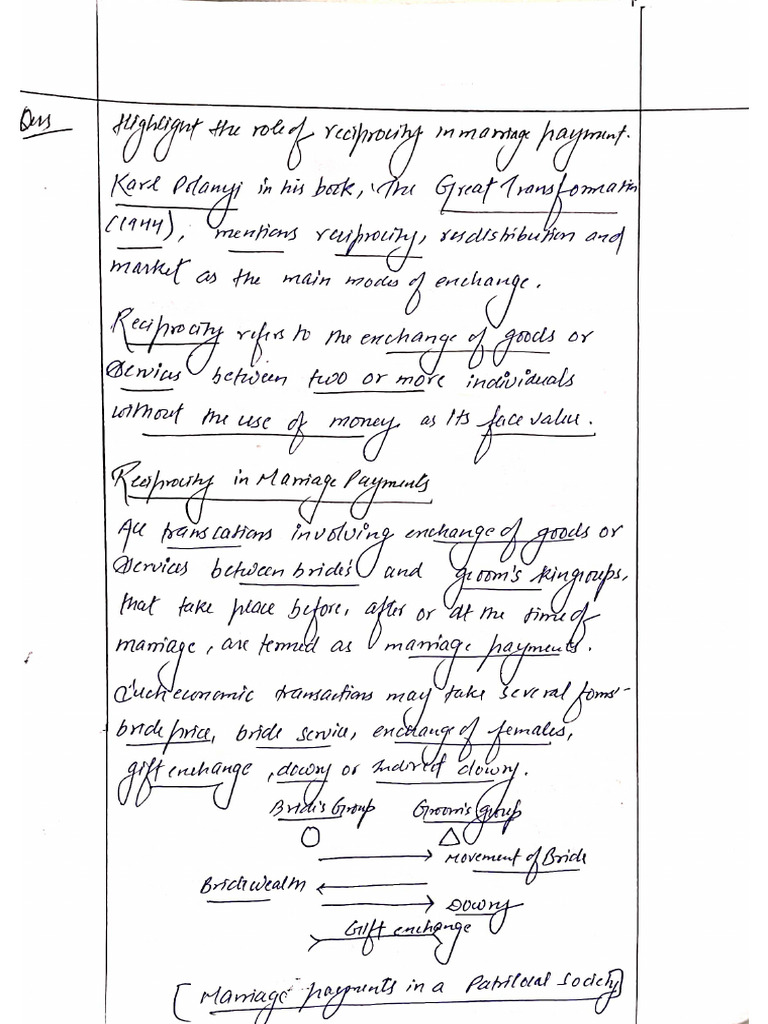 Ques
Highlight the role of reciprocity in marriage payment.
Karl Polanyi in his book, 'The Great Transformation
(1944), mentions reciprocity, resdistribution and
market as the main modes of exchange.
Reciprocity refers to the exchange of goods or
Services between two or more individuals
without the use of money as its face value.
Reciprocity in Marriage Payments
All transcations involving exchange of goods or
Services between bride's and groom's kingroups,
that take place before, after or at the time of
marriage, are termed as marriage payments.
Such economic transactions may take several forms-
bride price, bride service, exchange of females,
gift exchange, dowry or Indirect dowry.
Bride's Group Groom's group
Movement of Bride
Bridewealth
Dowry
Gift exchange
[Marriage payments in a Patrilocal Society]